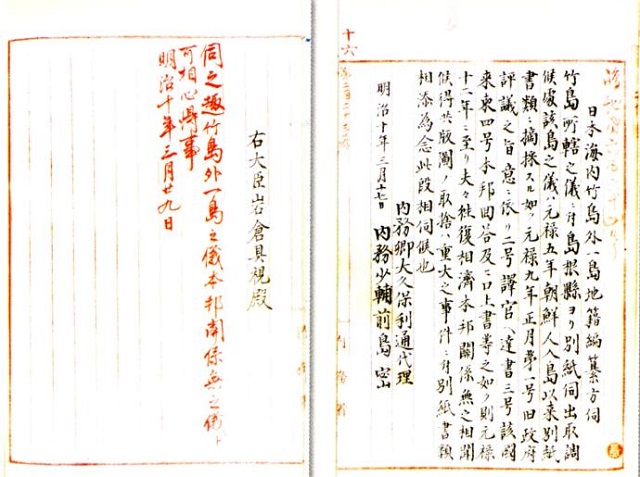 十六
日本海内竹島外一島地籍編纂方伺
竹島所轄之儀ニ付島根縣ヨリ別紙伺出取調
候處該島之儀ハ元禄五年朝鮮人入島以来別紙
書類ニ摘採スル如ク元禄九年正月第一号旧政府
評議之旨意ニ依リ二号譯官ヘ達書三号該國
来柬四号本邦回答及ヒ口上書等之如ク則元禄
十二年ニ至リ夫々往復相濟本邦関係無之相聞
候得共版圖ノ取捨ハ重大之事件ニ付別紙書類
相添為念此段相伺候也
内務卿大久保利通代理
明治十年三月十七日 内務少輔前島密
右大臣岩倉具視殿
伺之趣竹島外一島之儀本邦関係無之儀ト
可相心得事
明治十年三月廿九日